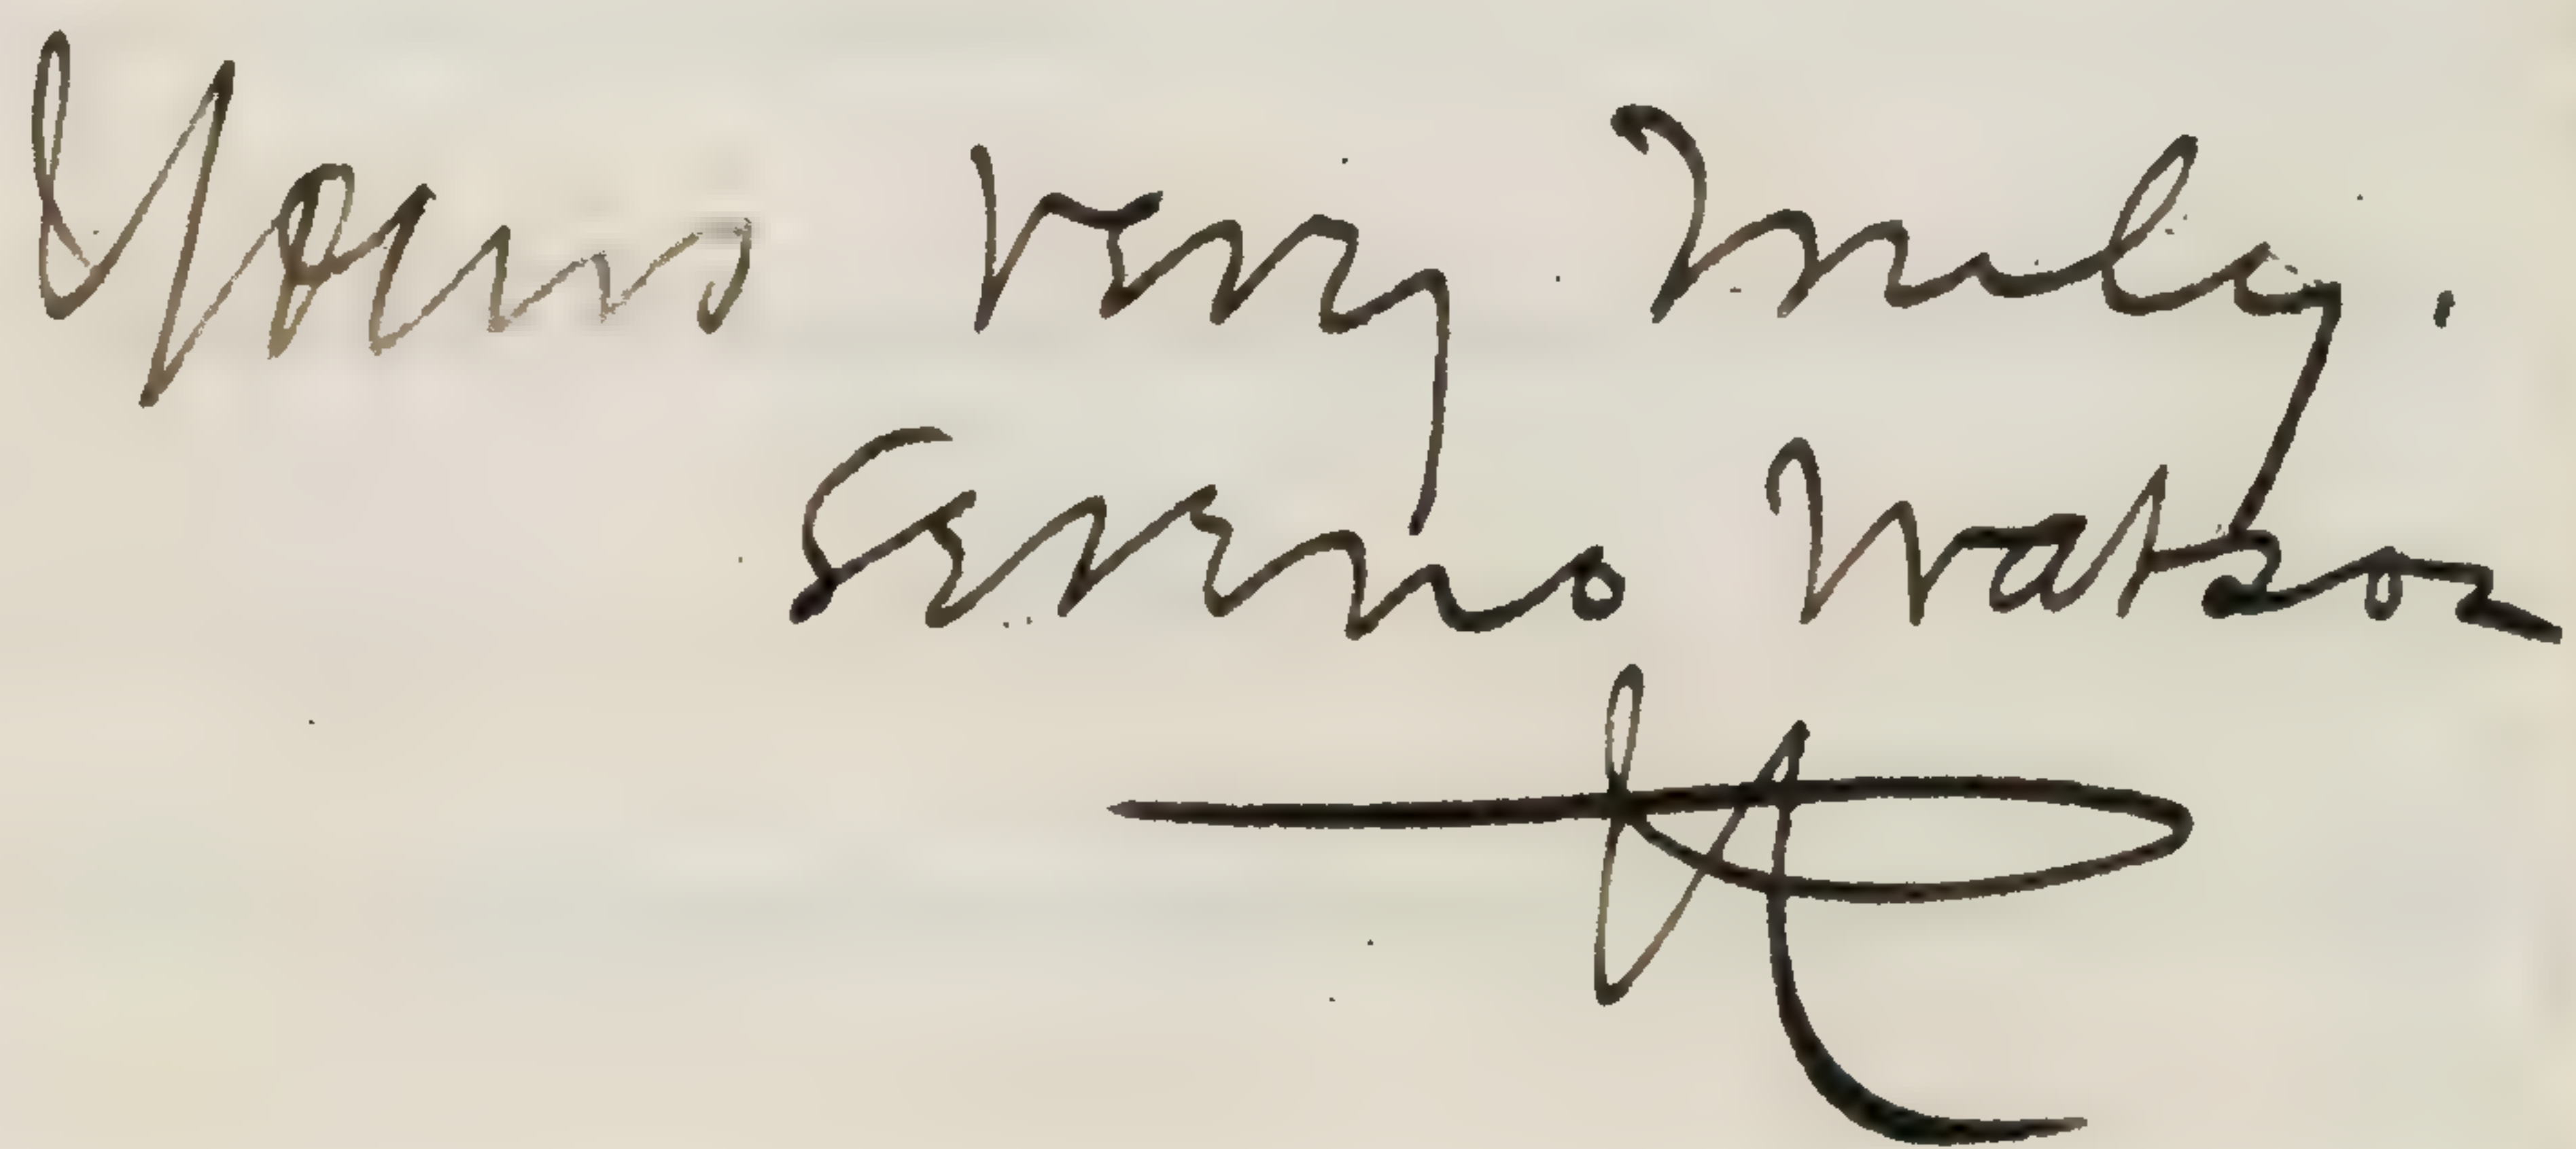 Yours very truly.
Sereno Watson